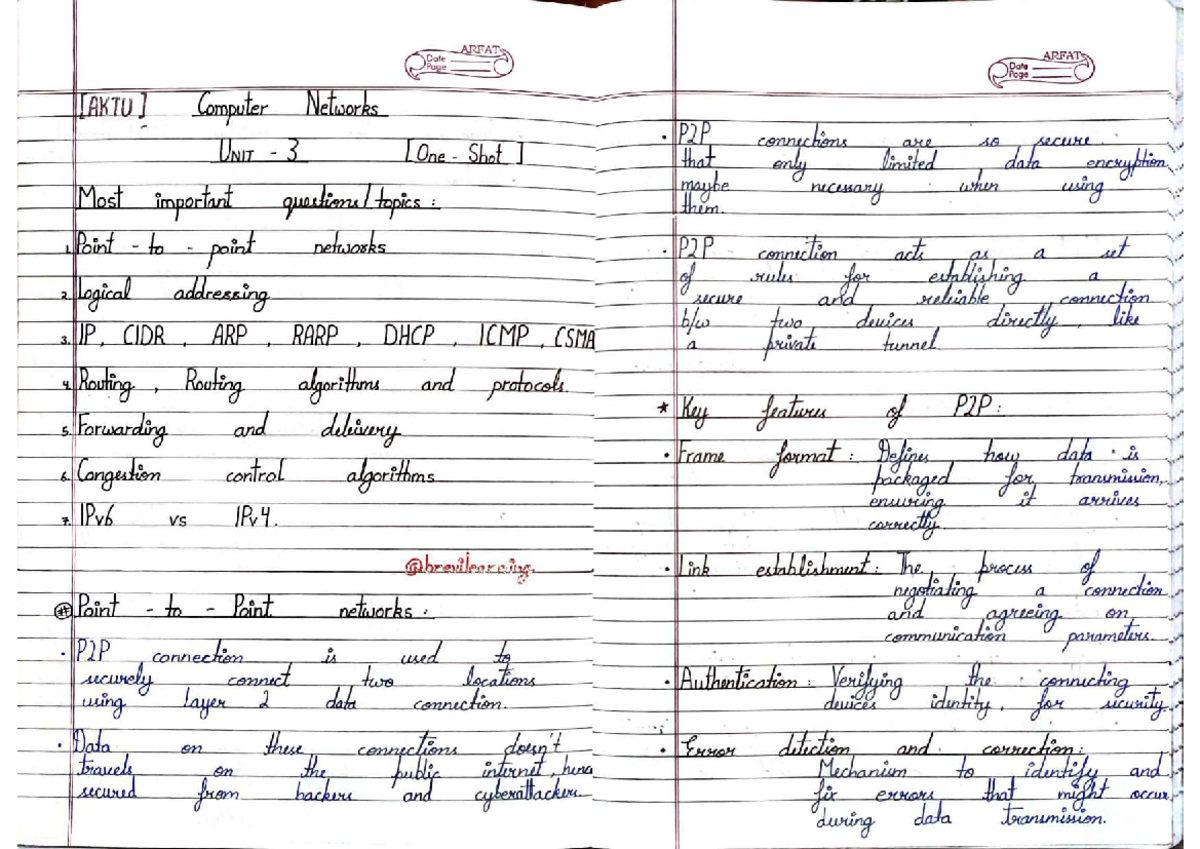 ARFAT
Date
Page
[AKTU] Computer Networks
UNIT - 3 [One - Shot]
Most important questions/topics :
1. Point - to - point networks
2. Logical addressing
3. IP, CIDR, ARP, RARP, DHCP, ICMP, CSMA
4. Routing, Routing algorithms and protocols.
5. Forwarding and deleivery
6. Congestion control algorithms
7. IPv6 vs IPv4.
@brevilearning.
# Point - to - Point networks :
· P2P connection is used to
securely connect two locations
using layer 2 data connection.
· Data on these connections doesn't
travels on the public internet, henc
secured from hackers and cyberattackers
ARFAT
Date
Page
· P2P connections are so secure
that only limited data encryption
maybe necessary when using
them.
· P2P connection acts as a set
of rules for establishing a
secure and releiable connection
b/w two devices directly, like
a private tunnel.
* Key features of P2P :
· Frame format : Defines how data is
packaged for transmission,
ensuring it arrives
correctly.
· Link establishment : The process of
negotiating a connection
and agreeing on
communication parameters.
· Authentication : Verifying the connecting
devices identity, for security.
· Error detection and correction :
Mechanism to identify and
fix errors that might occur
during data transmission.